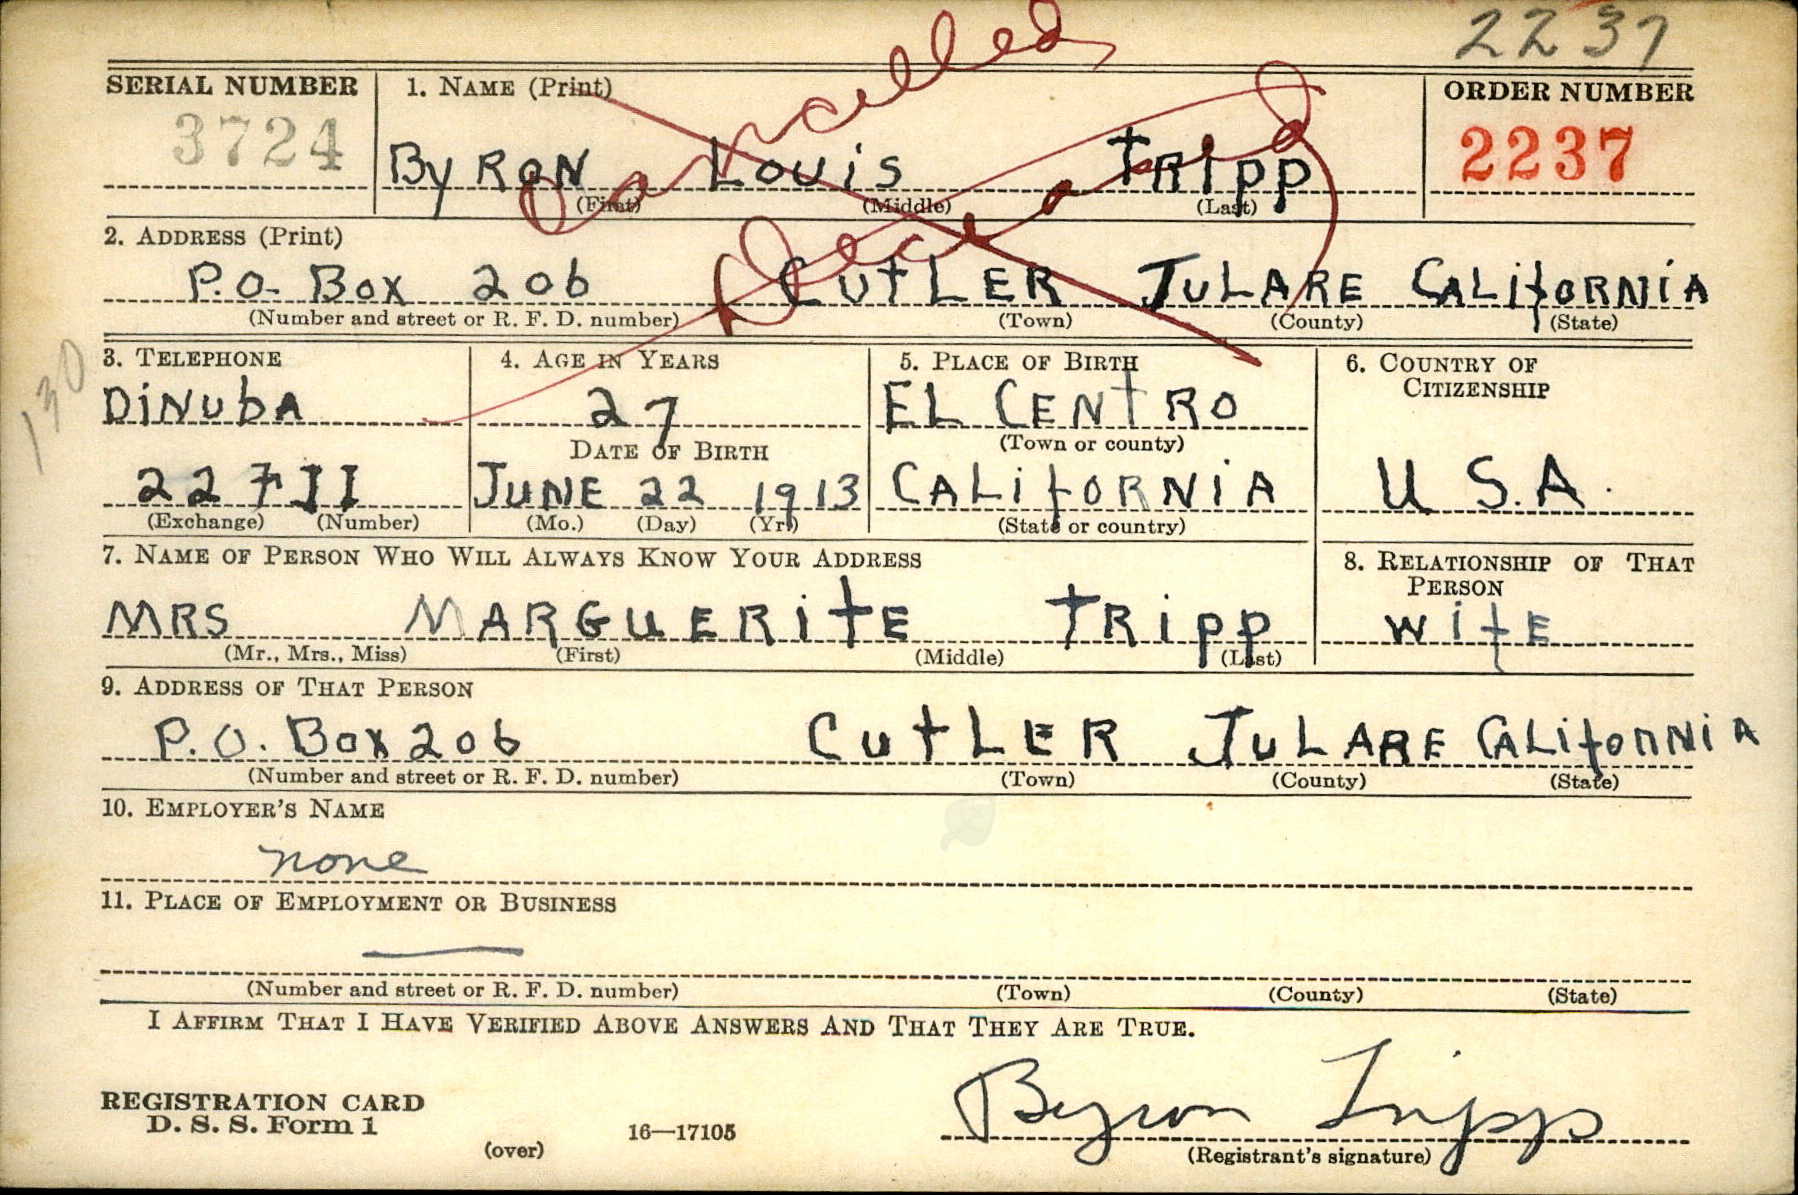 2237
Cancelled
Deceased
SERIAL NUMBER 1. NAME (Print) ORDER NUMBER
3724 ByRON LOUiS tRIpp 2237
(First) (Middle) (Last)
2. ADDRESS (Print)
P.O. BOX 206 CUtLER TULARE CALifORNiA
(Number and street or R. F. D. number) (Town) (County) (State)
130
3. TELEPHONE 4. AGE IN YEARS 5. PLACE OF BIRTH 6. COUNTRY OF CITIZENSHIP
DiNubA 27 EL CENtRO
DATE OF BIRTH (Town or county)
JUNE 22 1913 CALifORNiA U.S.A.
(Exchange) (Number) (Mo.) (Day) (Yr.) (State or country)
7. NAME OF PERSON WHO WILL ALWAYS KNOW YOUR ADDRESS 8. RELATIONSHIP OF THAT PERSON
MRS MARGUERitE tRipp WifE
(Mr., Mrs., Miss) (First) (Middle) (Last)
9. ADDRESS OF THAT PERSON
P.O. Box 206 CutLER TuLARE CALifoRNiA
(Number and street or R. F. D. number) (Town) (County) (State)
10. EMPLOYER'S NAME
none
11. PLACE OF EMPLOYMENT OR BUSINESS
(Number and street or R. F. D. number) (Town) (County) (State)
I AFFIRM THAT I HAVE VERIFIED ABOVE ANSWERS AND THAT THEY ARE TRUE.
Byron Tripp
REGISTRATION CARD
D. S. S. Form 1
(over) 16—17105 (Registrant's signature)